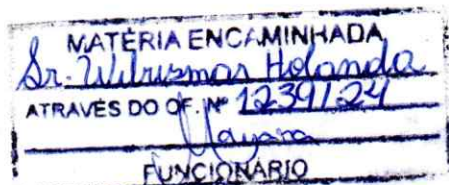 MATÉRIA ENCAMINHADA
Sr. Wilrismar Holanda
ATRAVÉS DO OF. Nº 1239/24
Nayana
FUNCIONÁRIO